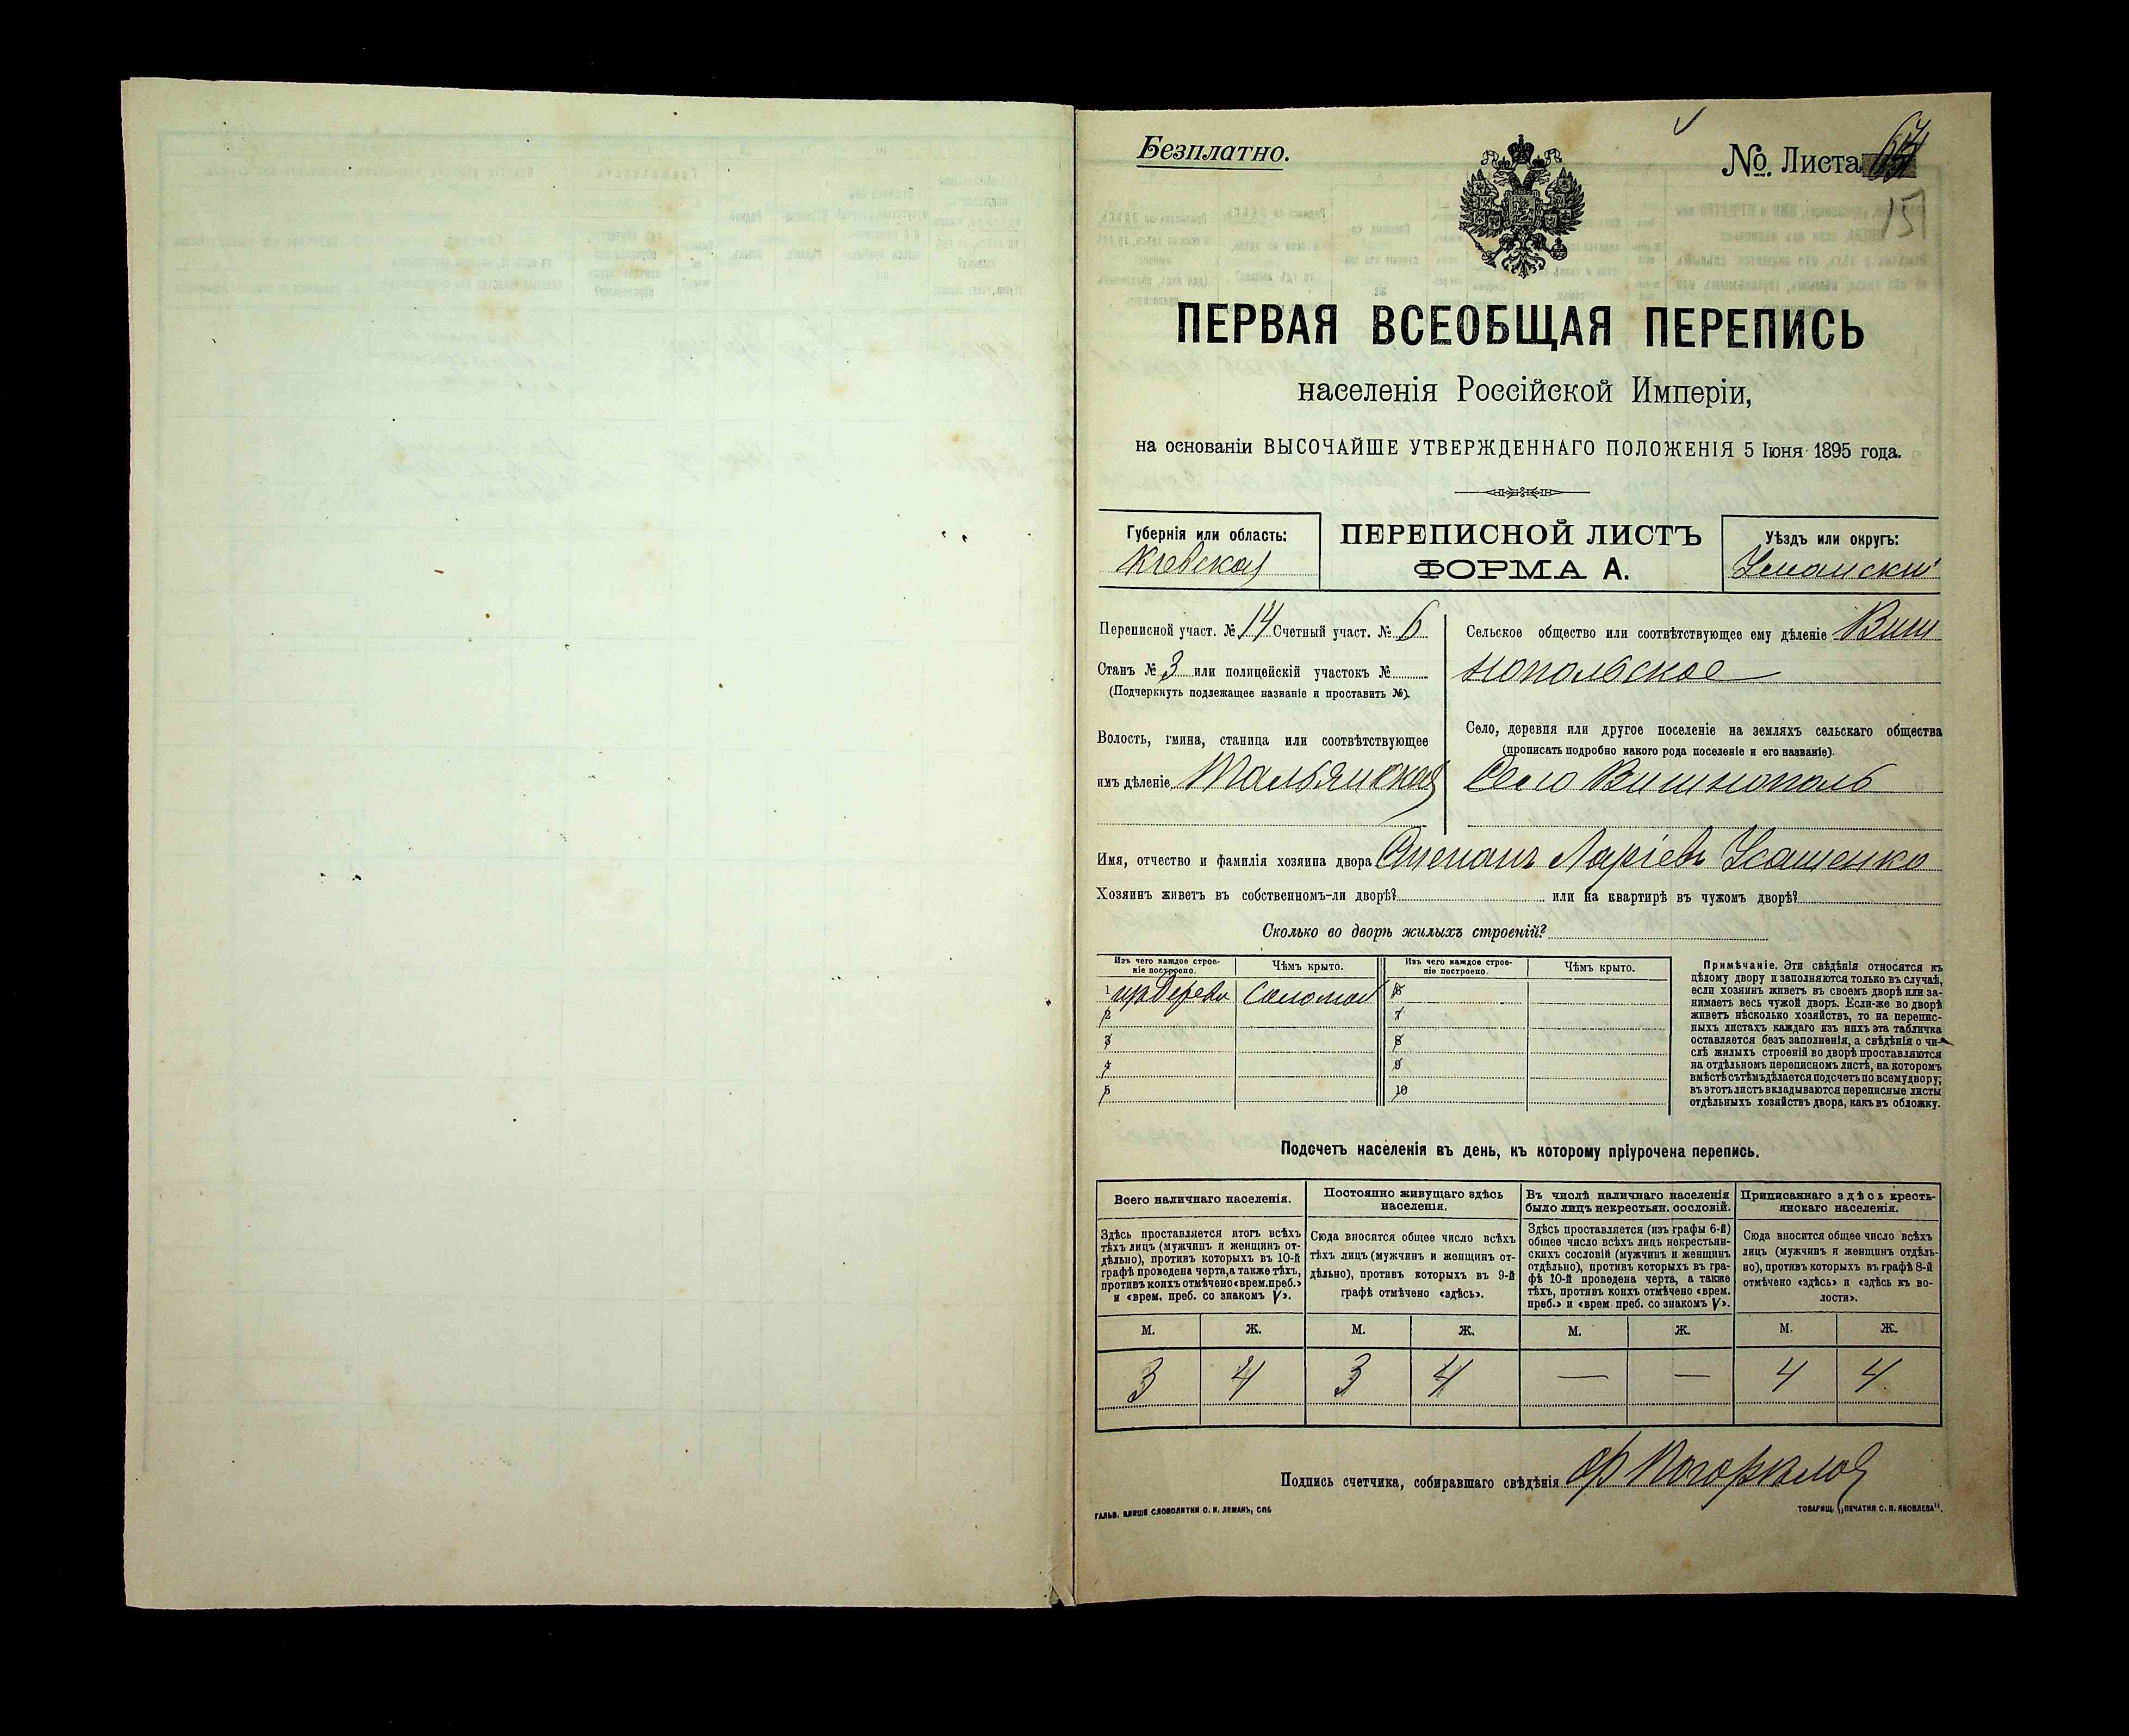 Безплатно.
№. Листа
151
ПЕРВАЯ ВСЕОБЩАЯ ПЕРЕПИСЬ
населенія Россійской Имперіи,
на основаніи ВЫСОЧАЙШЕ УТВЕРЖДЕННАГО ПОЛОЖЕНІЯ 5 Іюня 1895 года.
Губернія или область:
Кіевская
ПЕРЕПИСНОЙ ЛИСТЪ
ФОРМА А.
Уѣздъ или округъ:
Уманскій
Переписной участ. № 14 Счетный участ. № 6
Станъ № 3 или полицейскій участокъ №
(Подчеркнуть подлежащее названіе и проставить №).
Волость, гмина, станица или соотвѣтствующее
имъ дѣленіе Тальянская
Сельское общество или соотвѣтствующее ему дѣленіе Виш
нопольское
Село, деревня или другое поселеніе на земляхъ сельскаго общества
(прописать подробно какого рода поселеніе и его названіе).
Село Вишнополь
Имя, отчество и фамилія хозяина двора Степанъ Ларіевъ Усатенко
Хозяинъ живетъ въ собственномъ-ли дворѣ? или на квартирѣ въ чужомъ дворѣ?
Сколько во дворѣ жилыхъ строеній?
Изъ чего каждое строе-
ніе построено.
Чѣмъ крыто.
Изъ чего каждое строе-
ніе построено.
Чѣмъ крыто.
1 изъ дерева соломой 6
2 7
3 8
4 9
5 10
Примѣчаніе. Эти свѣдѣнія относятся къ
цѣлому двору и заполняются только въ случаѣ,
если хозяинъ живетъ въ своемъ дворѣ или за-
нимаетъ весь чужой дворъ. Если-же во дворѣ
живетъ нѣсколько хозяйствъ, то на перепис-
ныхъ листахъ каждаго изъ нихъ эта табличка
оставляется безъ заполненія, а свѣдѣнія о чи-
слѣ жилыхъ строеній во дворѣ проставляются
на отдѣльномъ переписномъ листѣ, на которомъ
вмѣстѣ съ тѣмъ дѣлается подсчетъ по всему двору;
въ этотъ листъ вкладываются переписные листы
отдѣльныхъ хозяйствъ двора, какъ въ обложку.
Подсчетъ населенія въ день, къ которому пріурочена перепись.
Всего наличнаго населенія.
Здѣсь проставляется итогъ всѣхъ
тѣхъ лицъ (мужчинъ и женщинъ от-
дѣльно), противъ которыхъ въ 10-й
графѣ проведена черта, а также тѣхъ,
противъ коихъ отмѣчено «врем. преб.»
и «врем. преб. со знакомъ V».
Постоянно живущаго здѣсь
населенія.
Сюда вносится общее число всѣхъ
тѣхъ лицъ (мужчинъ и женщинъ от-
дѣльно), противъ которыхъ въ 9-й
графѣ отмѣчено «здѣсь».
Въ числѣ наличнаго населенія
было лицъ некрестьян. сословій.
Здѣсь проставляется (изъ графы 6-й)
общее число всѣхъ лицъ некрестьян-
скихъ сословій (мужчинъ и женщинъ
отдѣльно), противъ которыхъ въ гра-
фѣ 10-й проведена черта, а также
тѣхъ, противъ коихъ отмѣчено «врем.
преб.» и «врем. преб. со знакомъ V».
Приписаннаго здѣсь кресть-
янскаго населенія.
Сюда вносится общее число всѣхъ
лицъ (мужчинъ и женщинъ отдѣль-
но), противъ которыхъ въ графѣ 8-й
отмѣчено «здѣсь» и «здѣсь къ во-
лости».
М. Ж. М. Ж. М. Ж. М. Ж.
3 4 3 4 — — 4 4
Подпись счетчика, собиравшаго свѣдѣнія
ГАЛЬВ. КЛИШЕ СЛОВОЛИТНИ О. И. ЛЕМАНЪ, СПБ
ТОВАРИЩ. „ПЕЧАТНЯ С. П. ЯКОВЛЕВА".